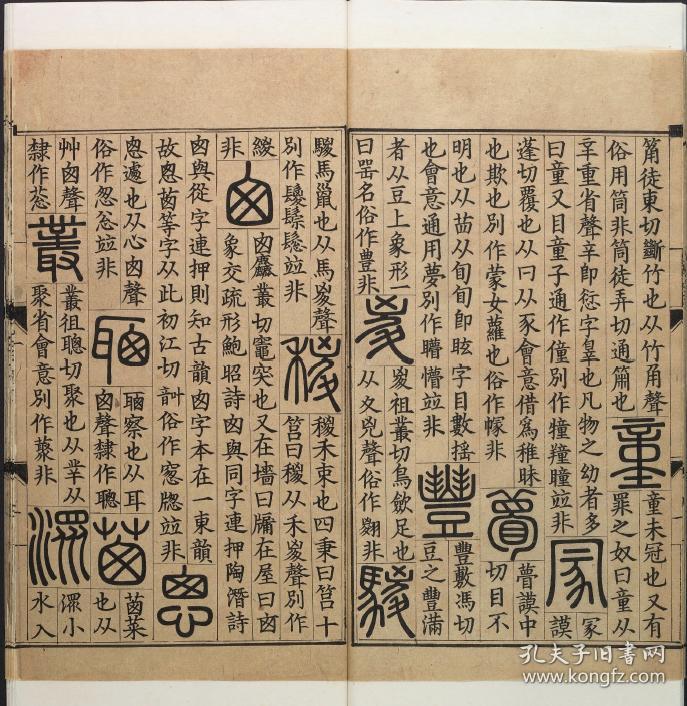 筩徒東切斷竹也从竹甬聲
俗用筒非筒徒弄切通簫也
童
童未冠也又有
罪之奴曰童从
䇂重省聲䇂即愆字辠也凡物之幼者多
曰童又目童子通作僮別作犝穜瞳竝非
冡
冡謨
蓬切覆也从冃从豕會意借爲稚昧
也欺也別作蒙女蘿也俗作幪非
瞢
瞢謨中
切目不
明也从苜从旬旬即眩字目數搖
也會意通用夢別作矒懵竝非
豐
豐敷馮切
豆之豐滿
者从豆上象形一
曰器名俗作豊非
㚇
㚇祖叢切鳥斂足也
从夊兇聲俗作翪非
騣
騣馬鬣也从馬㚇聲
別作鬉鬃騌竝非
稯
稯禾束也四秉曰筥十
筥曰稯从禾㚇聲別作
緵
非
囱
囱麤叢切竈突也又在墻曰牖在屋曰囱
象交疏形鮑昭詩囱與同字連押陶潛詩
囱與從字連押則知古韻囱字本在一東韻
故悤蔥等字从此初江切訓俗作窓牎竝非
悤
悤遽也从心囱聲
俗作忽忩竝非
聦
聦察也从耳
囱聲隸作聰
蔥
蔥菜
也从
艸囱聲
隸作葱
叢
叢祖聰切聚也从丵从
聚省會意別作藂非
潀
潀小
水入
孔夫子旧书网
www.kongfz.com